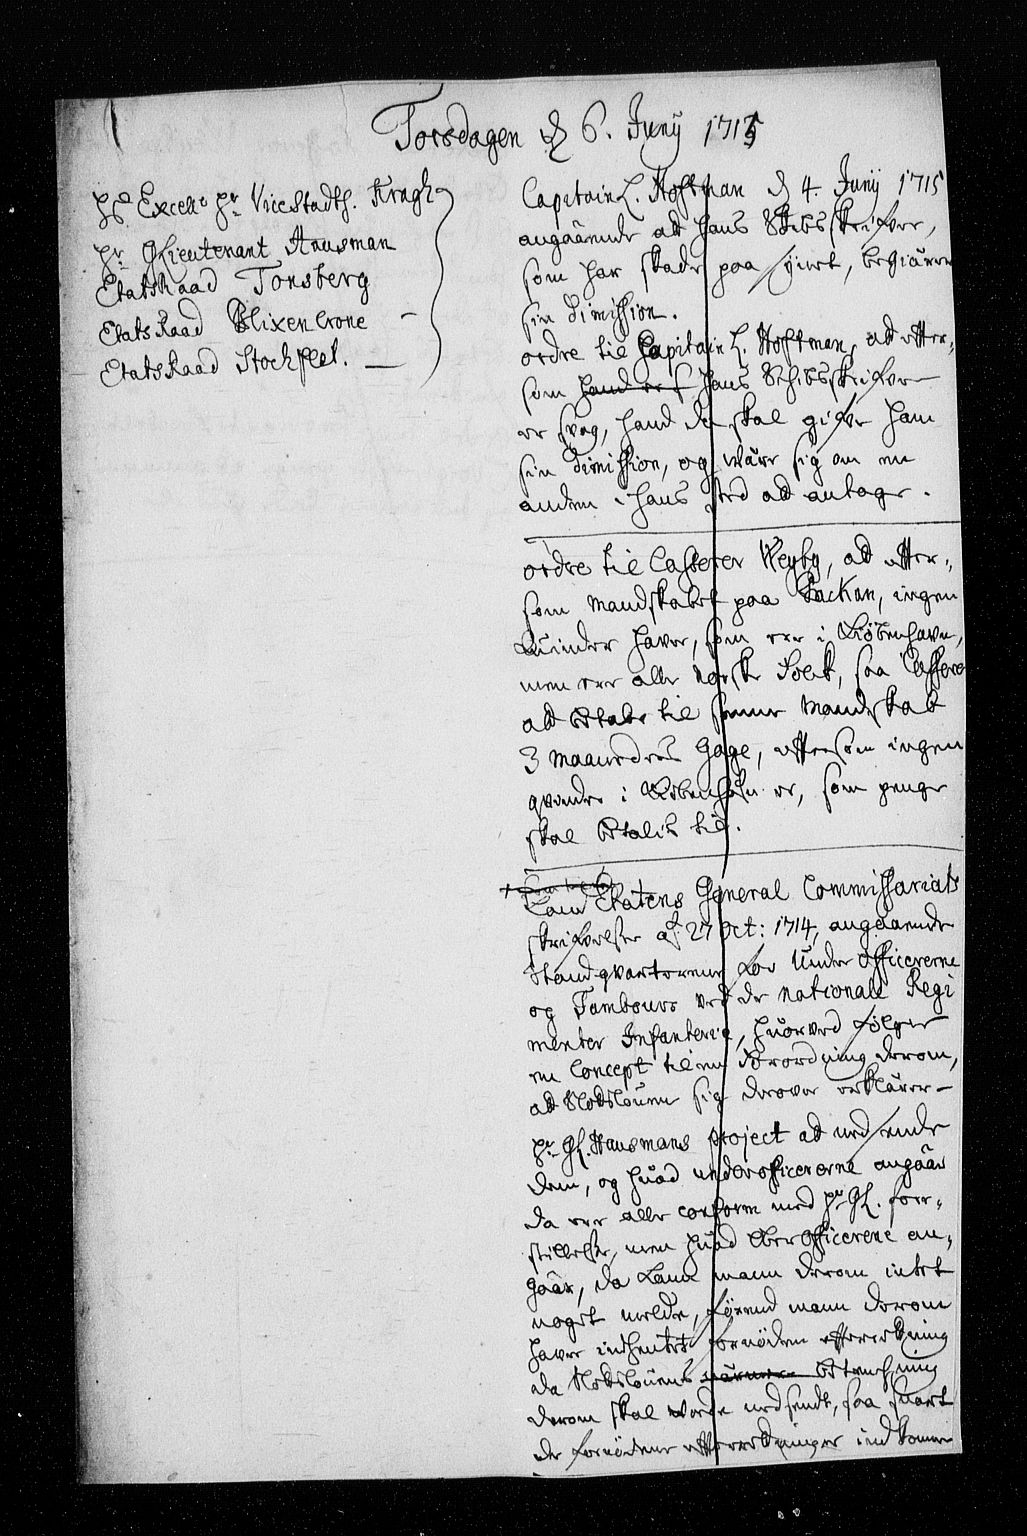 Torsdagen d 6. Junij 1715
Hs Excell. Hr ViceStadth. Kragh
Hr GLieutenant Hausman
EtatsRaad Tonsberg
Etats Raad Blixencrone
EtatsRaad Stochflet.
Capitain L. Hoffman d 4. Junij 1715
angaaende at hans Skibsskrifver,
som har skade paa syinet, begiærer
sin dimission.
ordre til Capitain L. Hoffman, at efter-
som hand er hans Schibsskrifver
er svag, hand da skal gifve ham
sin dimission, og være sig om en
anden i hans sted at antage.
ordre til Casserer Weyby, at efter-
som Mandskabet paa Packan, ingen
quinder haver, som ere i Kiøbenhavn,
men ere alle norske Folk, saa Cassere
at betale til samme Mandskab
3 maaneders Gage, eftersom ingen
qvinder i Kiøbenhafn er, som penge
skal betalis til.
Land Etatens General Commissariats
skrifvelse af 27 Oct: 1714, angaaende
Standqvarterene for Under officererne
og Tambours ved de nationale Regi
menter Infanterie, hvorved følger
en Concept til en Forordning derom,
at Slotsloven sig derover erklærer
Hr GL. Hausmans project at nedsende
dem, og hvad underofficererne angaar
da ere alle conform med Hr GL. fore-
stillelse, men hvad Ober Officerene an-
gaar, da kand mann derom intet
noget melde, førend mann derom
haver indhentet fornøden efterretning
da Slotslovens nærmere betenchning
derom skal worde nedsendt, saa snart
de fornødene efterretninger indkomme